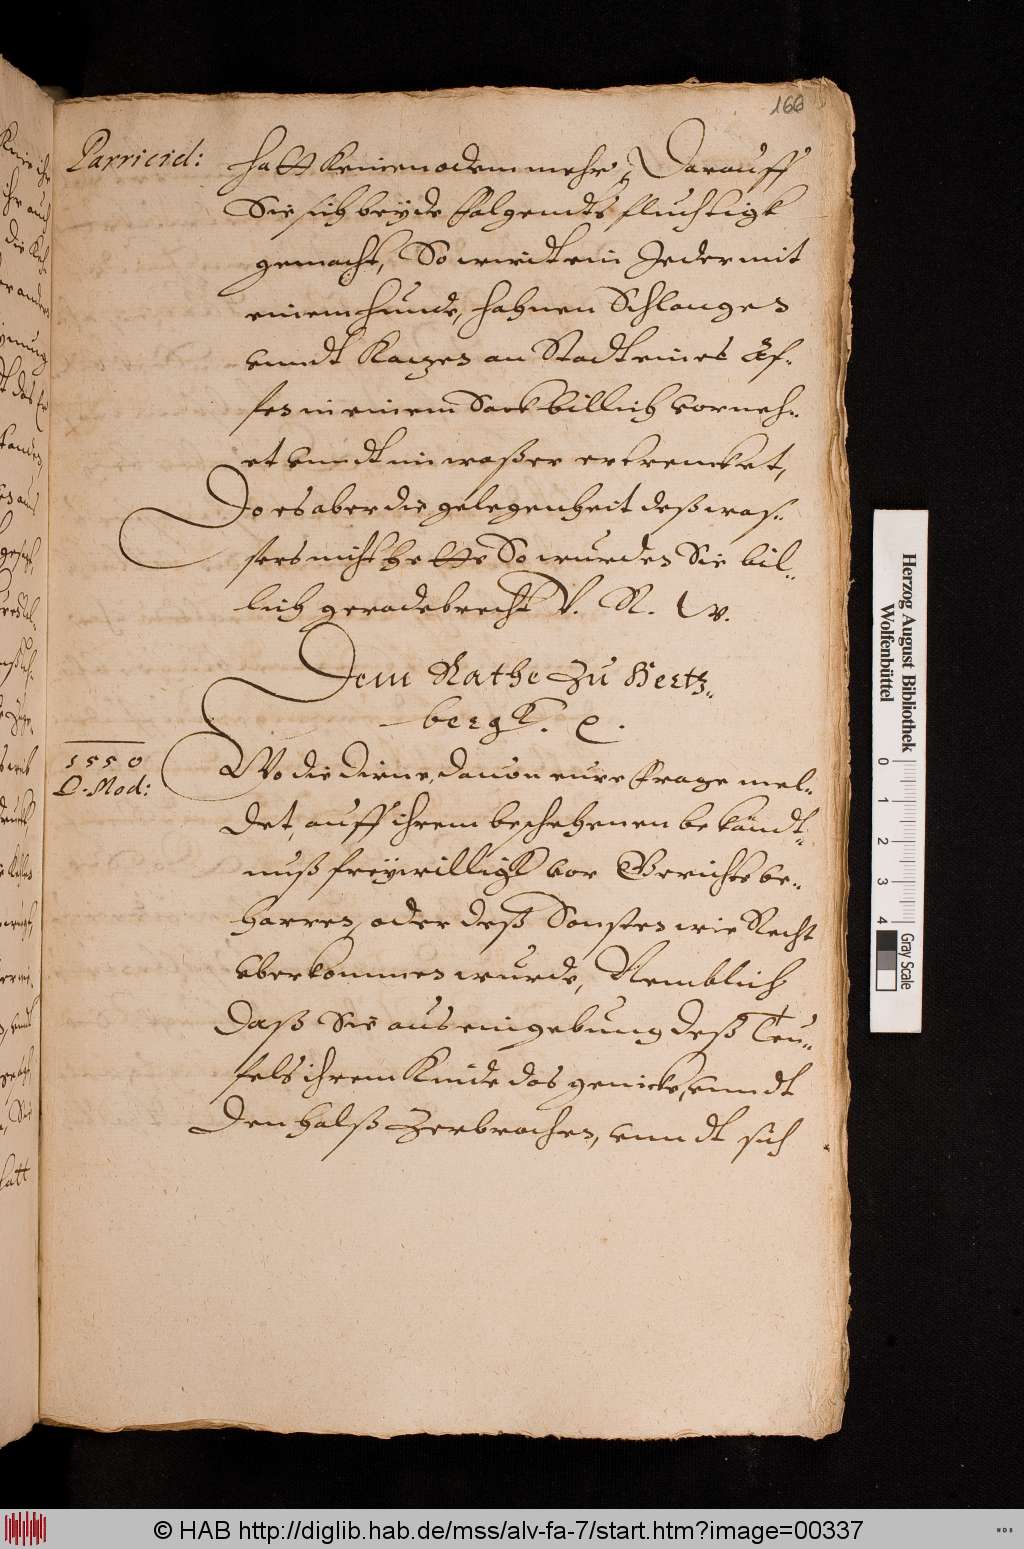 166
Parricid:
hatt Keinen odem mehr, Darauff
Sie sich beyde folgendts fluchtigk
gemacht, So wirdt ein Jeder mit
einem hunde, hahnen Schlangen
vnndt Katzen an Stadt eines Af-
fen in einem Sack billich verneh-
et vnndt im waßer ertrencket,
Do es aber die gelegenheit deß was-
sers nicht hette So wurden Sie bil-
lich geradebrecht V. R. W.
Dem Rathe zu Hertz-
bergk. e.
1550
Q. Mod:
Wo die dirne, dauon eure frage mel-
det, auff ihrem beschehenen bekandt-
nuß freywilligk vor Gerichte be-
harren, oder deß Sonsten wie Recht
vberkommen wurde, Nemblich
Daß Sie aus eingebung deß Teu-
fels ihrem Kinde das genicke, vnndt
den halß zerbrochen, vnndt sich
Herzog August Bibliothek
Wolfenbüttel
0 1 2 3 4
Gray Scale
© HAB http://diglib.hab.de/mss/alv-fa-7/start.htm?image=00337